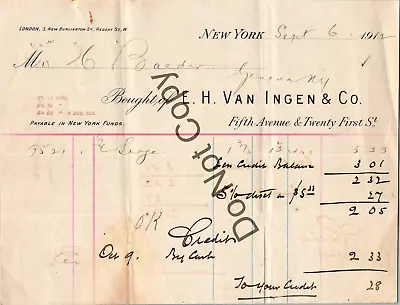 LONDON, 3, NEW BURLINGTON ST., REGENT ST., W
NEW YORK Sept 6 1912
M H Baeder
Geneva NY
Bought of E. H. VAN INGEN & CO.
PAYABLE IN NEW YORK FUNDS.
FIFTH AVENUE & TWENTY FIRST St.
9521 1 Serge 5 33
Less Credit Balance 3 01
2 32
5% disct on $5 33 27
2 05
OK
Credit
Oct 9. By Cash 2 33
To your Credit 28
Do Not Copy